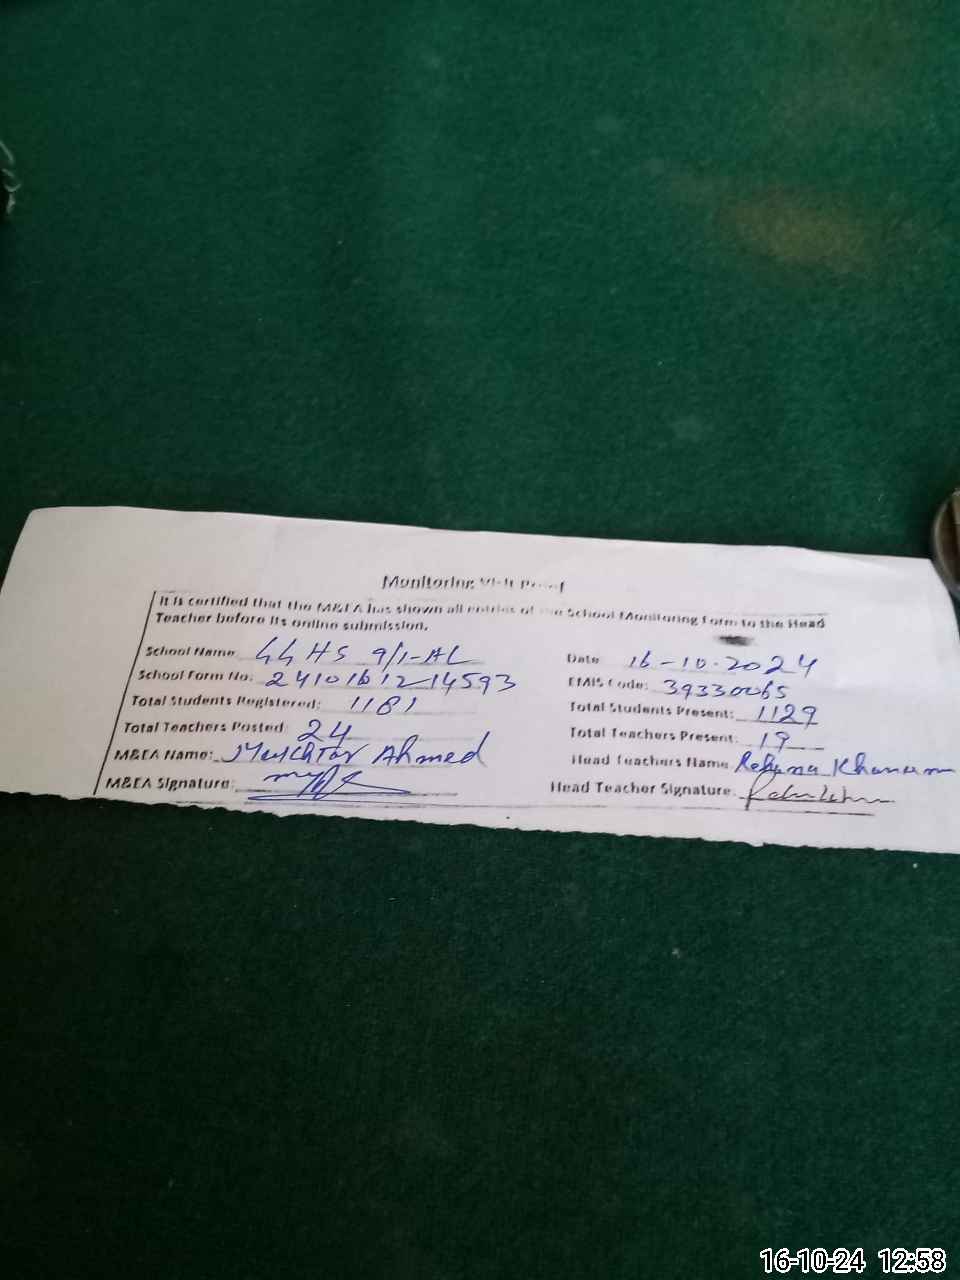 Monitoring Visit Proof
It is certified that the M&EA has shown all entries of the School Monitoring Form to the Head
Teacher before its online submission.
School Name GGHS 9/1-AL Date 16-10-2024
School Form No: 2410161214593 EMIS Code: 39330065
Total Students Registered: 1181 Total Students Present: 1129
Total Teachers Posted: 24 Total Teachers Present: 19
M&EA Name: Mukhtar Ahmed Head Teachers Name Rehana Khanum
M&EA Signature: Head Teacher Signature:
16-10-24 12:58